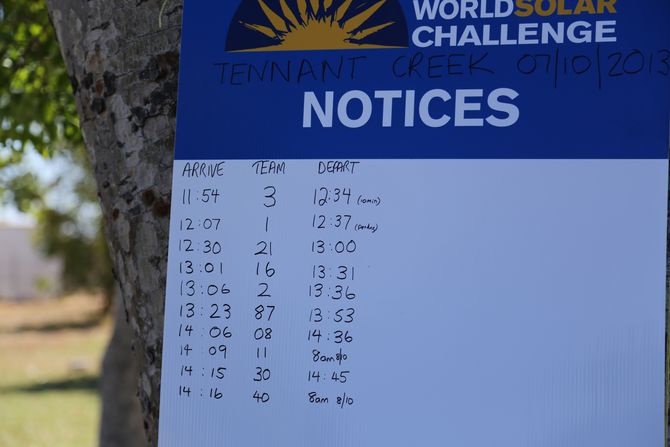 WORLD SOLAR
CHALLENGE
TENNANT CREEK 07/10/2013
NOTICES
ARRIVE TEAM DEPART
11:54 3 12:34 (10min)
12:07 1 12:37
12:30 21 13:00
13:01 16 13:31
13:06 2 13:36
13:23 87 13:53
14:06 08 14:36
14:09 11 8am 8/10
14:15 30 14:45
14:16 40 8am 8/10